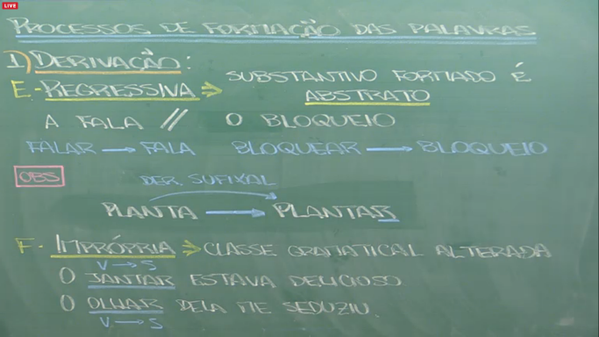 LIVE
PROCESSOS DE FORMAÇÃO DAS PALAVRAS
1) DERIVAÇÃO:
E.- REGRESSIVA → SUBSTANTIVO FORMADO É
ABSTRATO
A FALA // O BLOQUEIO
FALAR → FALA BLOQUEAR → BLOQUEIO
OBS DER. SUFIXAL
PLANTA → PLANTAR
F.- IMPRÓPRIA → CLASSE GRAMATICAL ALTERADA
V → S
O JANTAR ESTAVA DELICIOSO
O OLHAR DELA ME SEDUZIU.
V → S